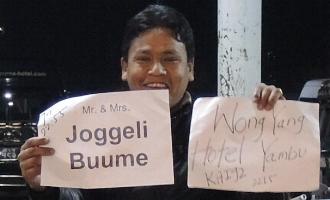 Mr. & Mrs.
Joggeli
Buume
Wong Yang
Hotel Yambu
2255